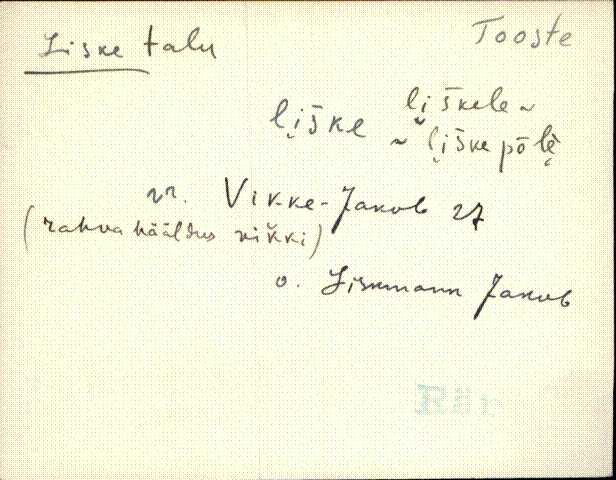 Liske talu
Tooste
li̮ške li̮škele ~
~ li̮škepōlè̮
vr. Vikke-Jakob 27
(rahva hääldus vikki)
o. Liskmann Jakob
Rär